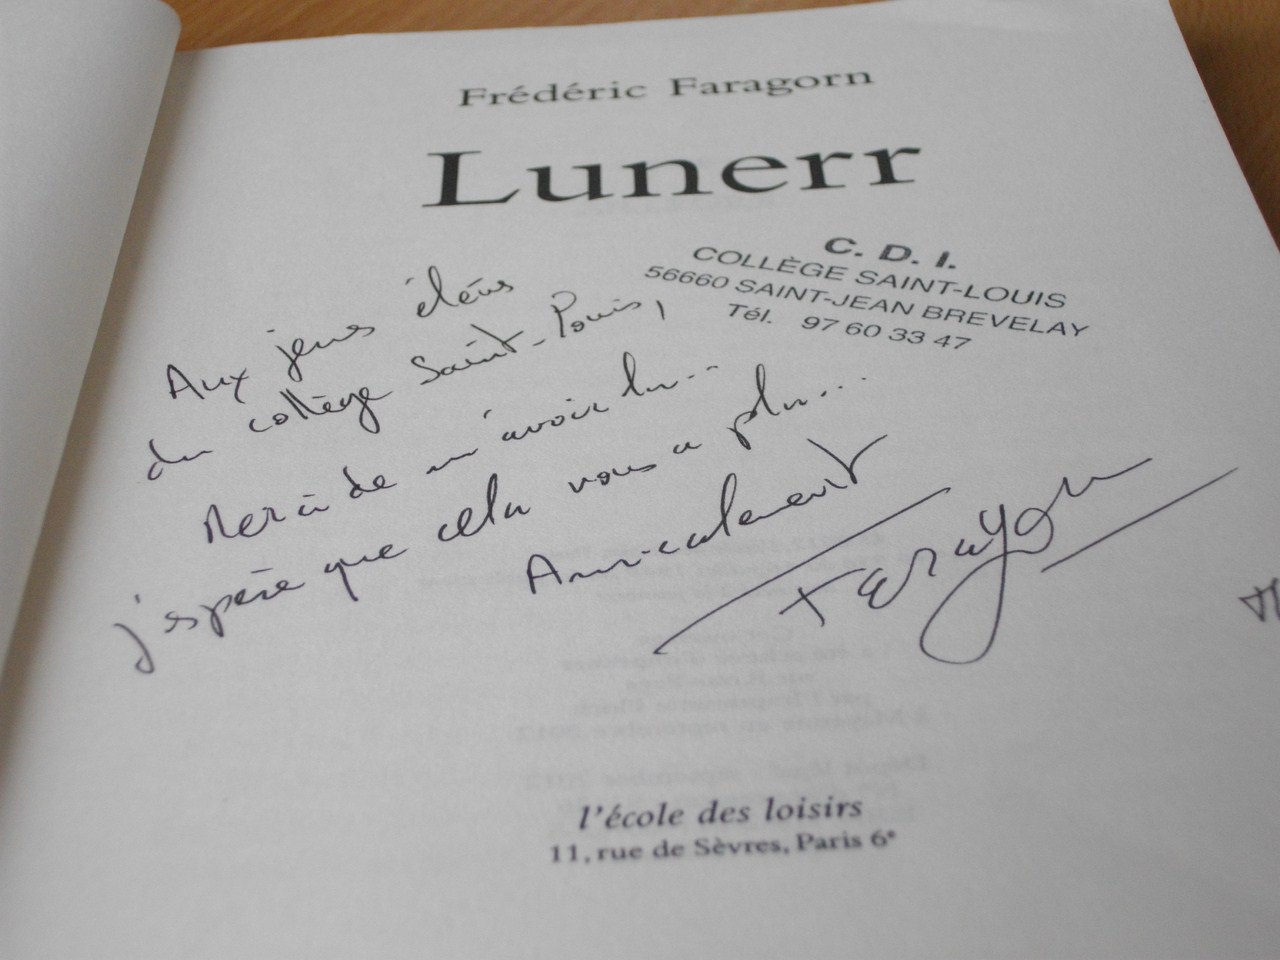 Frédéric Faragorn
Lunerr
C. D. I.
COLLÈGE SAINT-LOUIS
56660 SAINT-JEAN BREVELAY
Tél. 97 60 33 47
Aux jeunes élèves
du collège Saint-Louis,
Merci de m'avoir lu...
j'espère que cela vous a plu...
Amicalement
Faragorn
l'école des loisirs
11, rue de Sèvres, Paris 6e